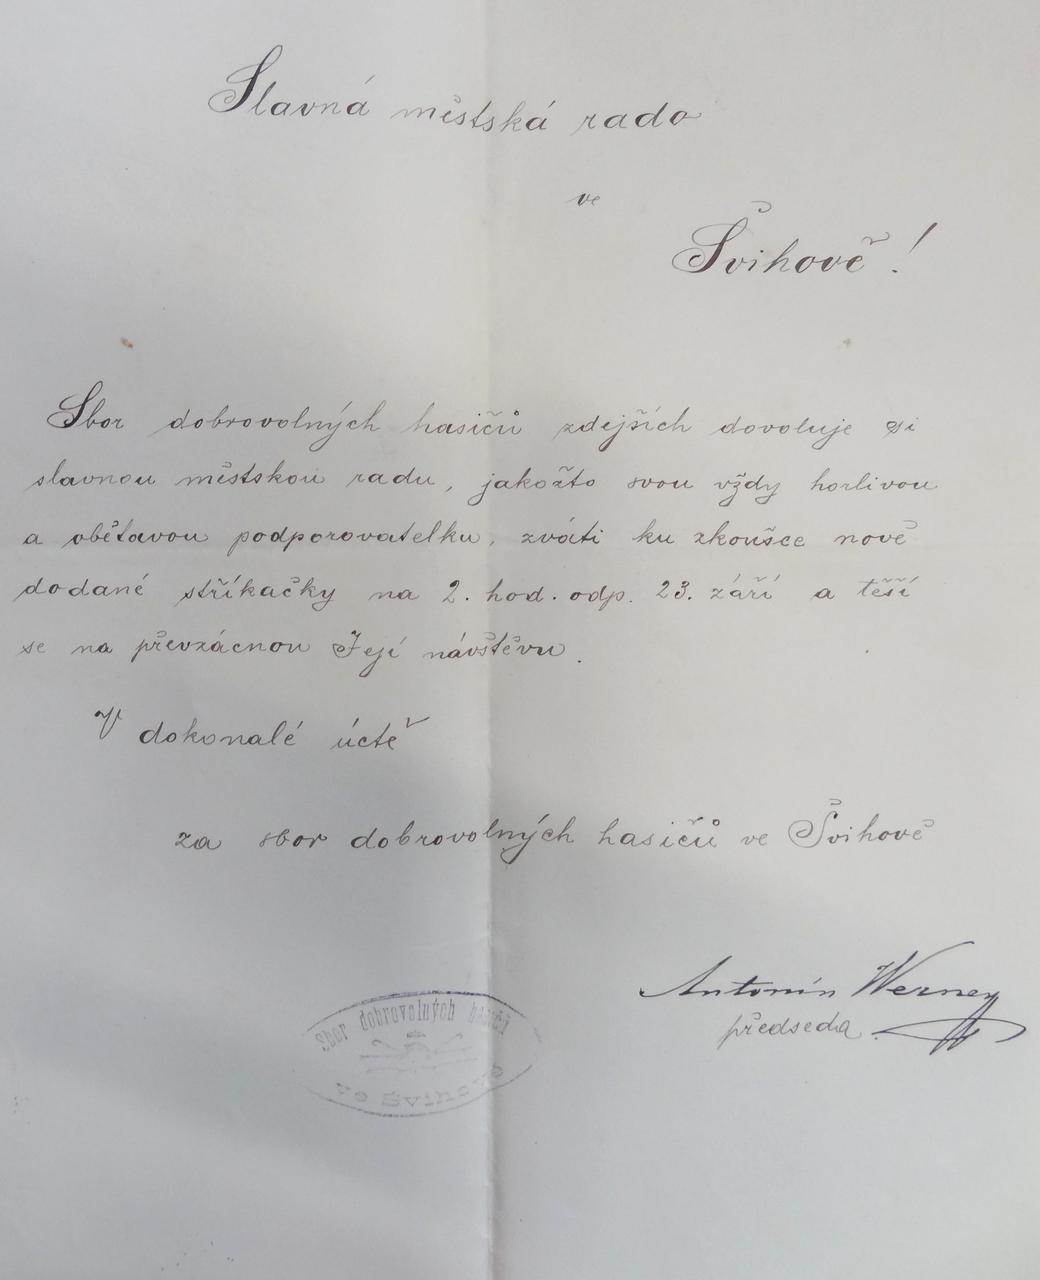 Slavná městská rado
ve
Švihově!
Sbor dobrovolných hasičů zdejších dovoluje si
slavnou městskou radu, jakožto svou vždy horlivou
a obětavou podporovatelku, zváti ku zkoušce nově
dodané stříkačky na 2. hod. odp. 23. září a těší
se na převzácnou Její návštěvu.
V dokonalé úctě
za sbor dobrovolných hasičů ve Švihově
Antonín
předseda.
Sbor dobrovolných hasičů
ve Švihově